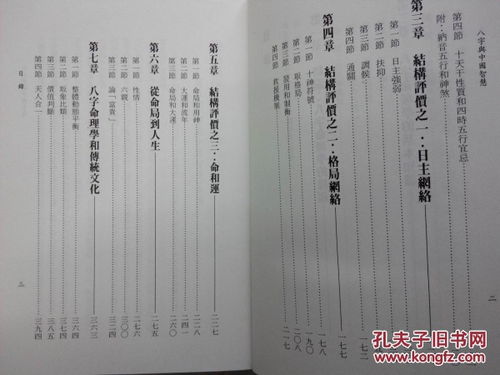 八字與中國智慧
二
第四節 十天干性質和四時五行宜忌
附：納音五行和神煞
第三章 結構評價之一：日主網絡
第一節 日主強弱
第二節 扶抑
第三節 調候
第四節 通關
第四章 結構評價之二：格局網絡 一七七
第一節 十神符號 一七八
第二節 取格局
第三節 發用和制衡 二〇八
第四節 救援機制 二一七
第五章 結構評價之三：命和運 二二七
第一節 命局和用神 二二八
第二節 大運和流年 二四一
第三節 命局和大運 二六〇
第六章 從命局到人生 二七五
第一節 性情 二七六
第二節 六親 三〇〇
第三節 論「富貴」 三二四
第七章 八字命理學和傳統文化 三六三
第一節 整體動態平衡 三六四
第二節 取象比類 三七四
第三節 價值判斷 三八五
第四節 天人合一 三九四
目錄
三
孔夫子旧书网
www.kongfz.com